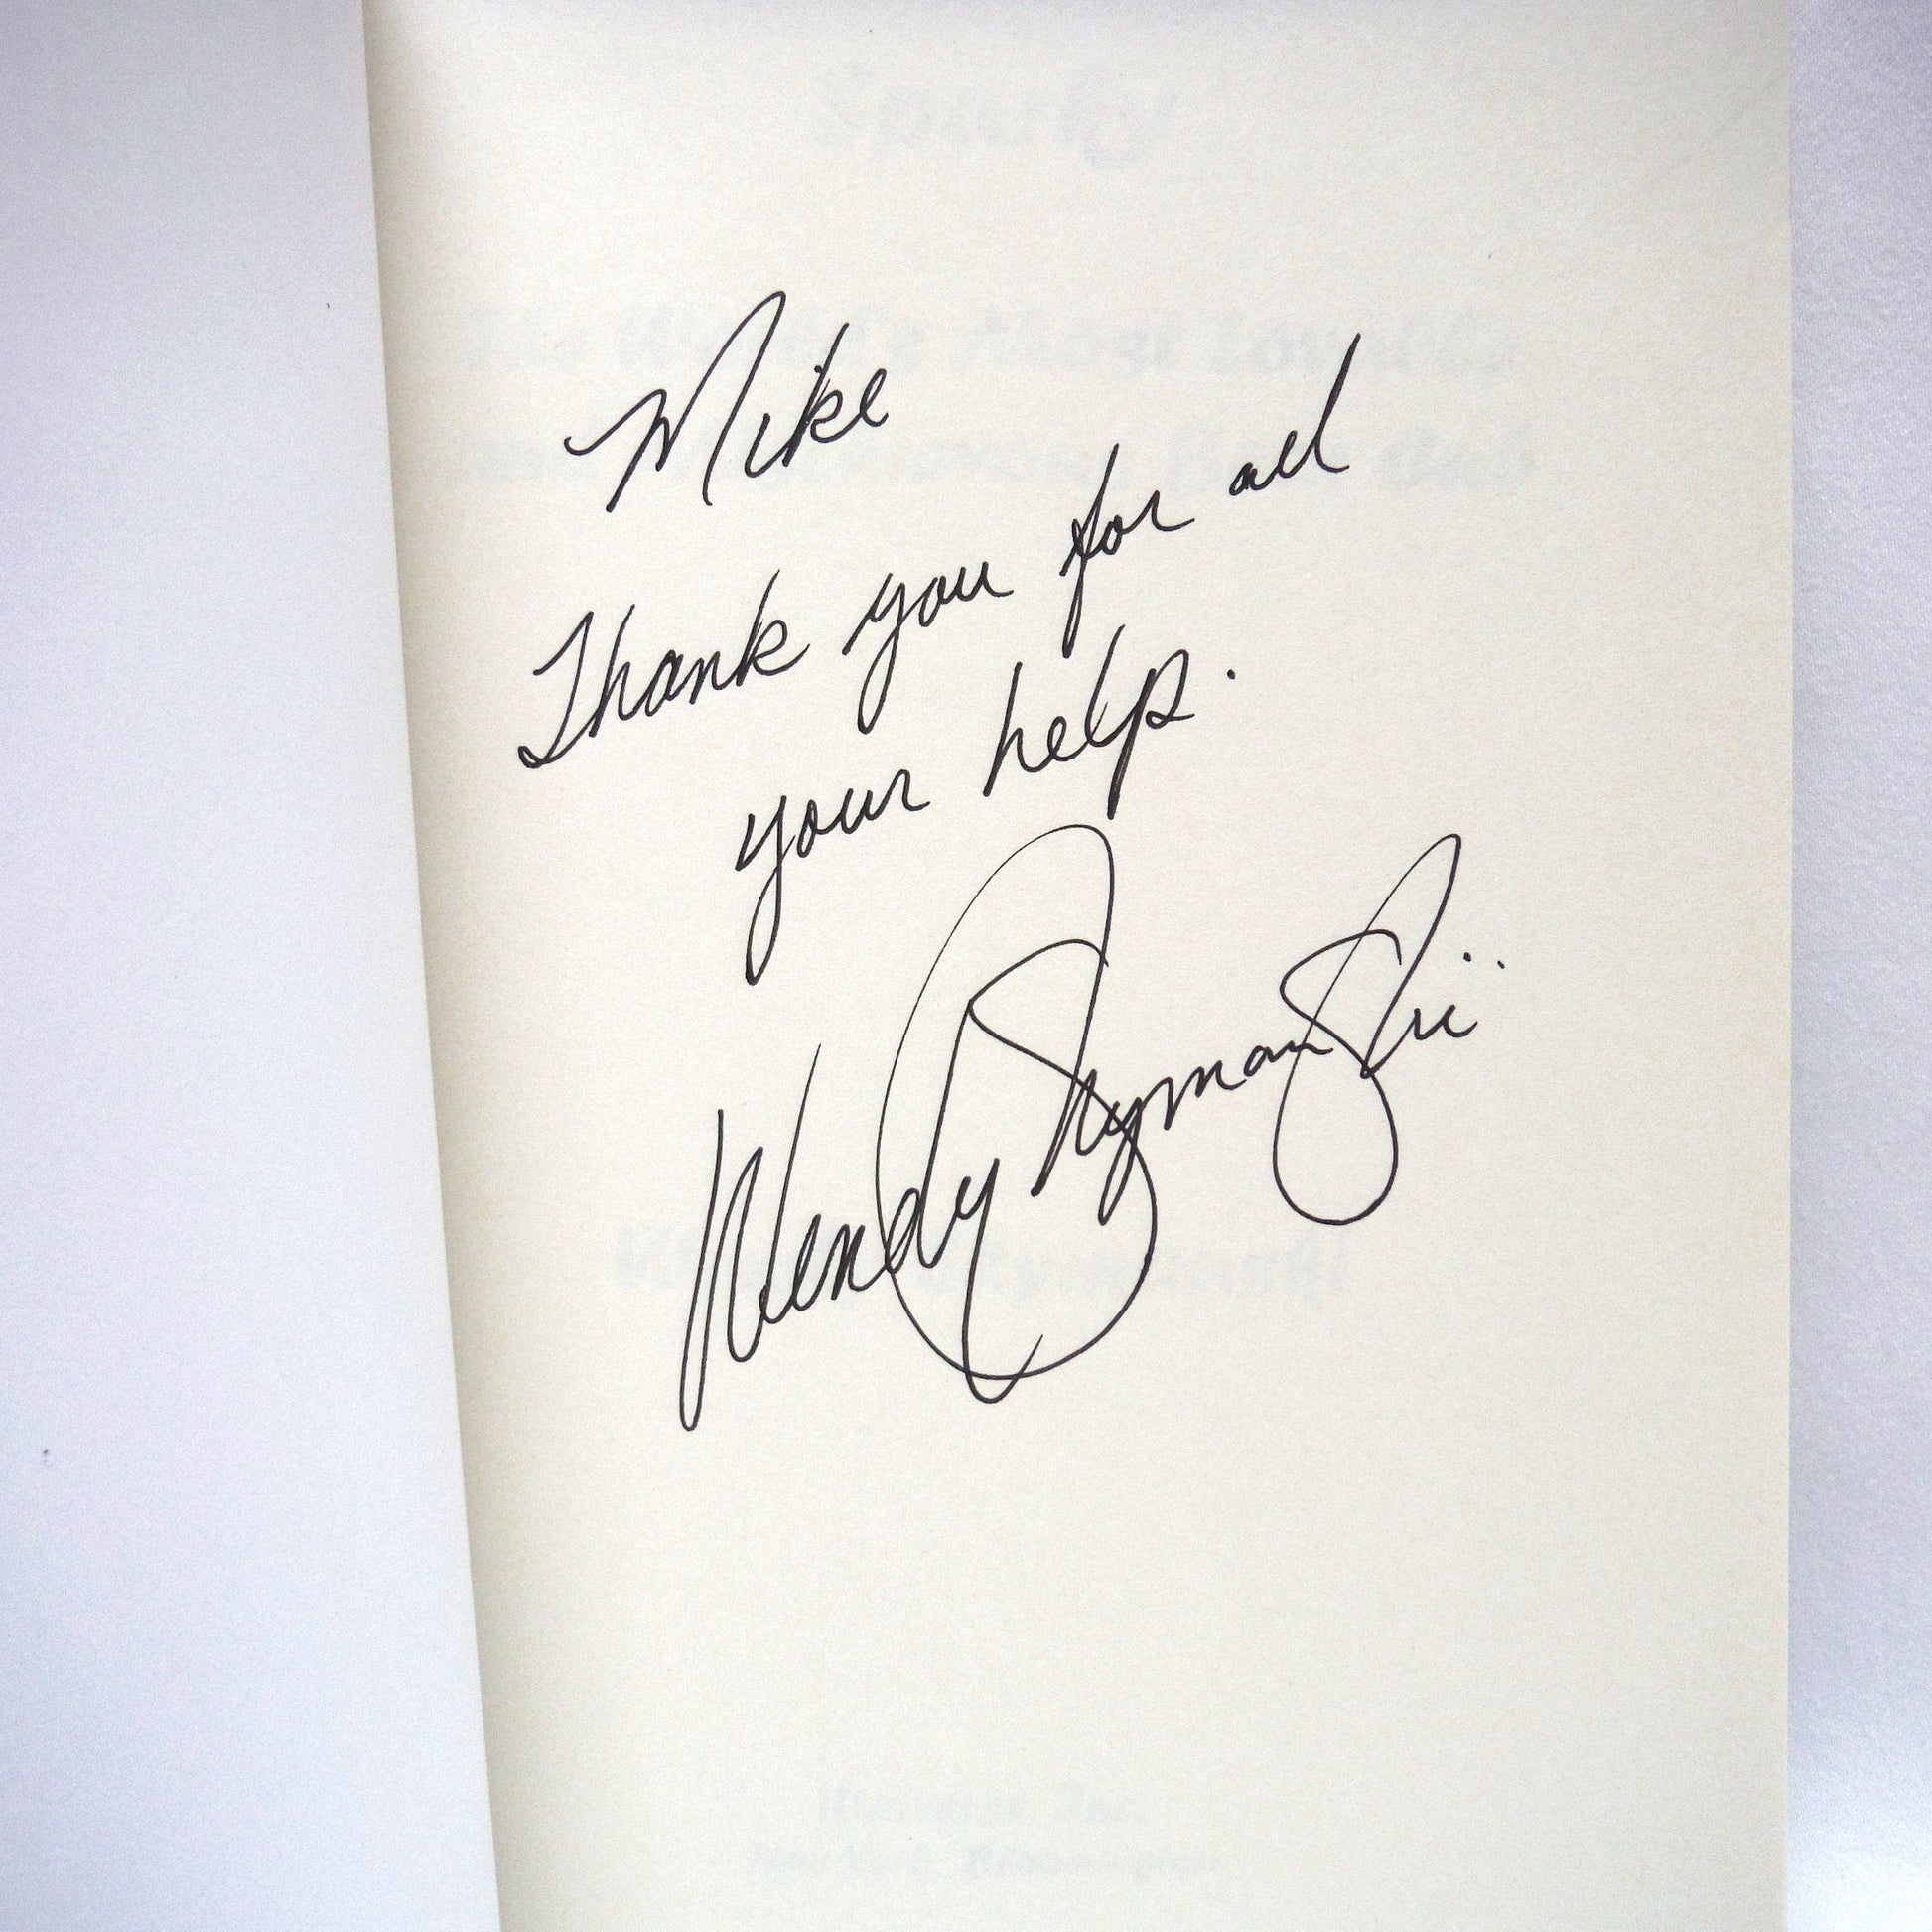 Mike
Thank you for all
your help.
Wendy Szymanski